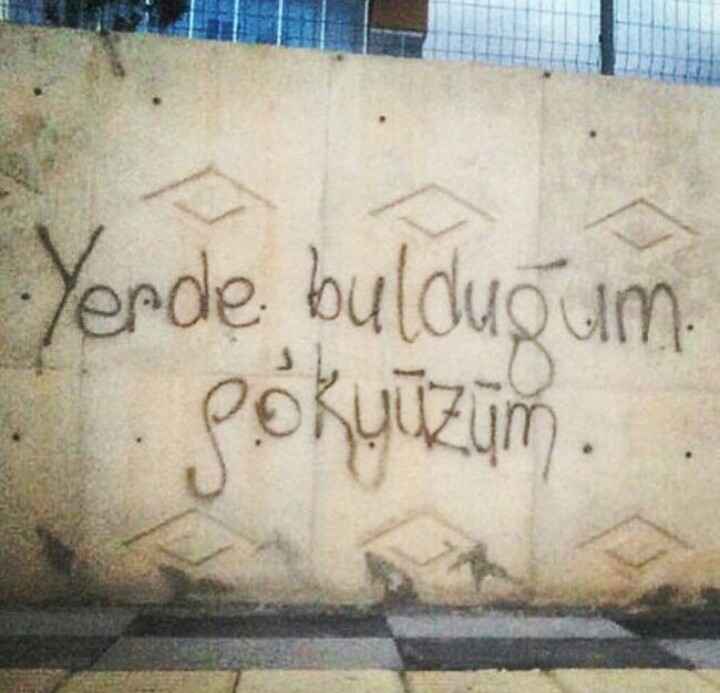 Yerde bulduğum
gökyüzüm